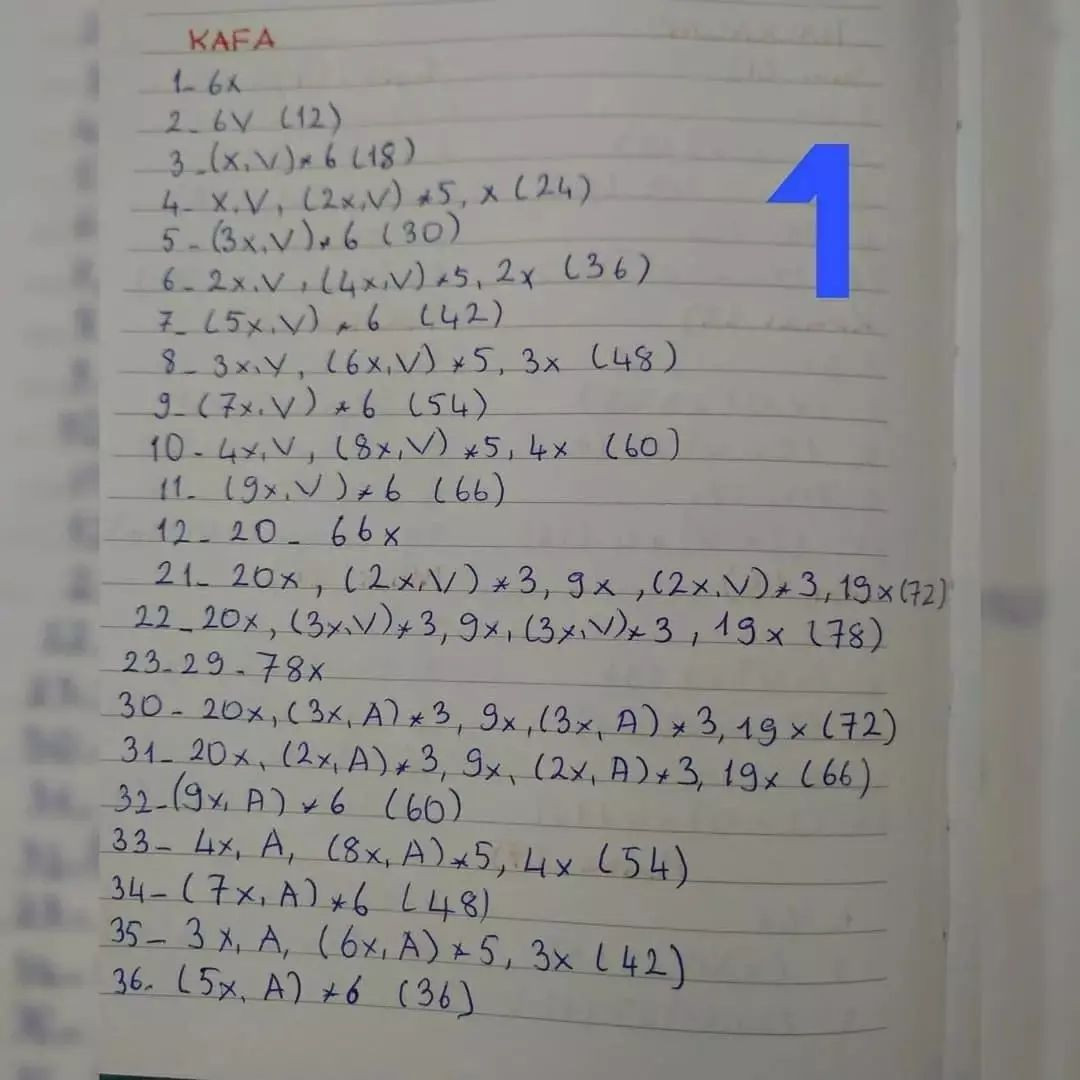 KAFA
1- 6x
2- 6V (12)
3-(x,V)*6 (18)
4- x,V, (2x,V) *5, x (24)
5-(3x,V)*6 (30)
6-2x,V, (4x,V)*5, 2x (36)
7-(5x,V)*6 (42)
8-3x,V, (6x,V)*5, 3x (48)
9-(7x,V)*6 (54)
10-4x,V, (8x,V)*5, 4x (60)
11-(9x,V)*6 (66)
12-20-66x
21-20x, (2x,V)*3, 9x, (2x,V)*3, 19x (72)
22-20x, (3x,V)*3, 9x, (3x,V)*3, 19x (78)
23-29-78x
30-20x, (3x,A)*3, 9x, (3x,A)*3, 19x (72)
31-20x, (2x,A)*3, 9x, (2x,A)*3, 19x (66)
32-(9x,A)*6 (60)
33-4x, A, (8x,A)*5, 4x (54)
34-(7x,A)*6 (48)
35-3x, A, (6x,A)*5, 3x (42)
36-(5x,A)*6 (36)
1